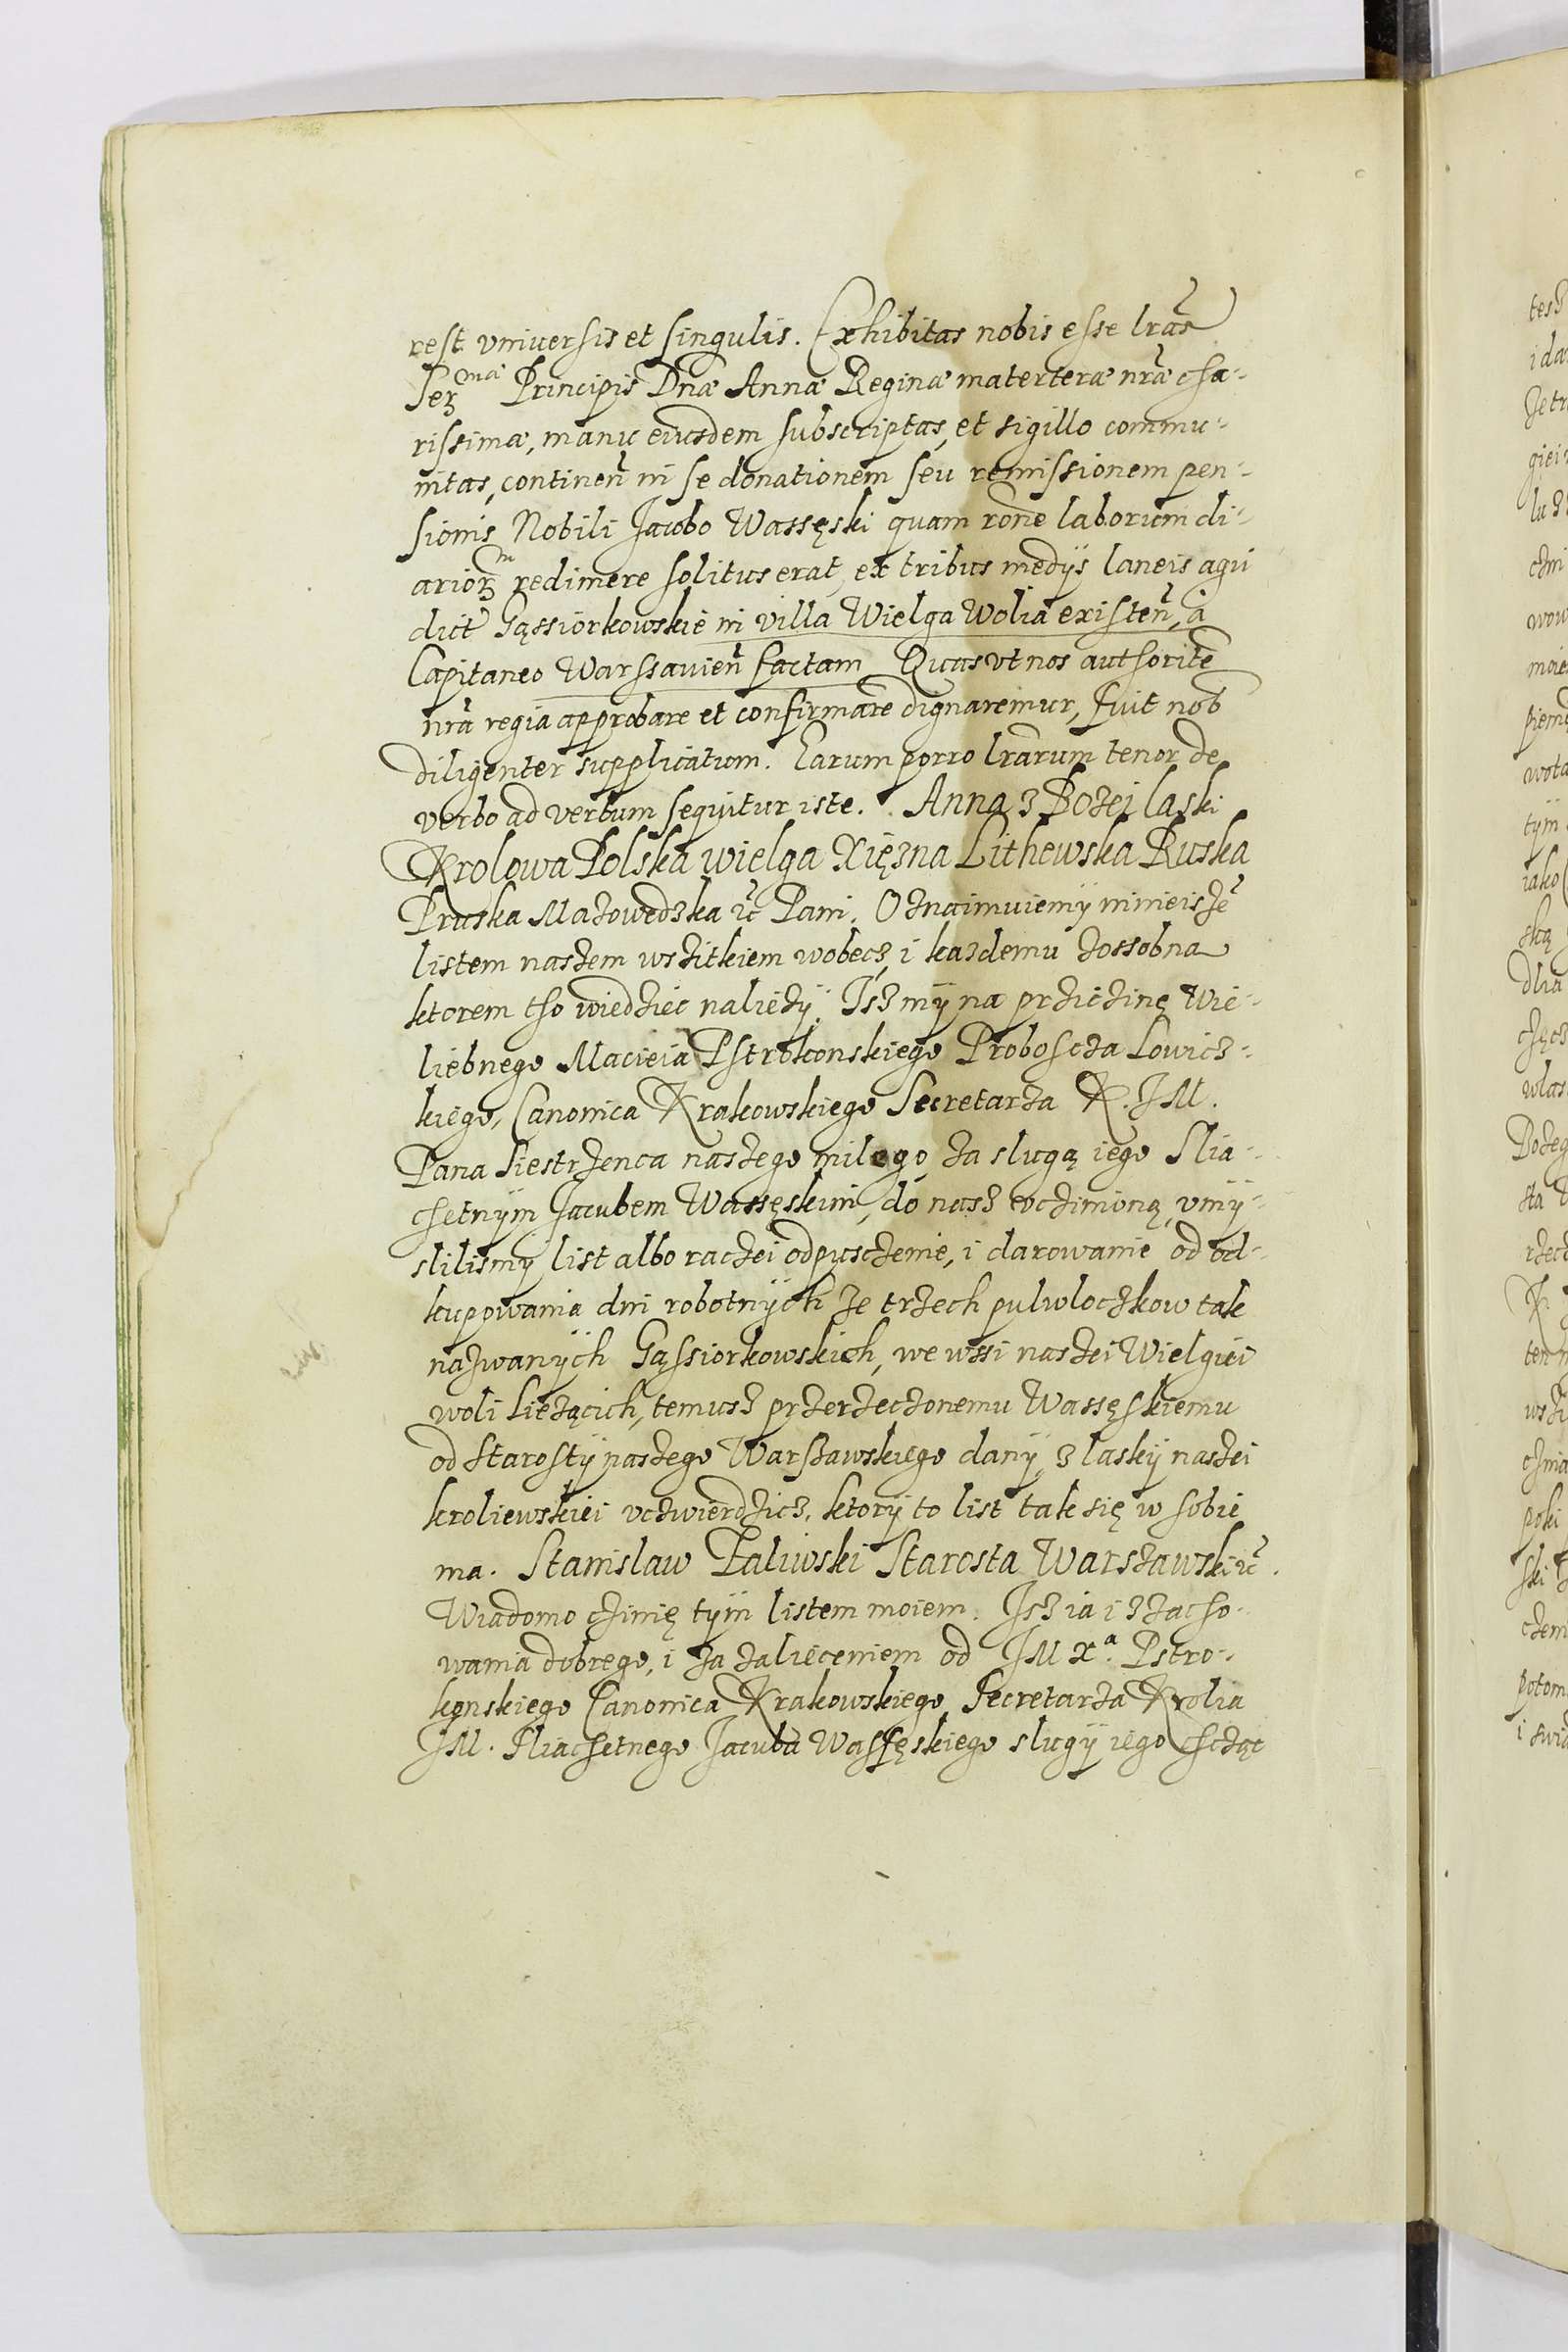 rest vniuersis et singulis. Exhibitas nobis esse lras̃
Serᵐᵃᵉ Principis Dnæ Annæ Reginæ materteræ nræ cha-
rissimæ, manu eiusdem subscriptas, et sigillo commu-
nitas, continen̄ in se donationem seu remissionem pen-
sionis Nobili Jacobo Wassęski quam rõne laborum di-
ariorᵐ redimere solitus erat, ex tribus medÿs laneis agri
dict̃ Gąssiorkowskie in villa Wielga Wolia existeñ, à
Capitaneo Warssauieñ factam Quas vt nos authoritẽ
nrã regia approbare et confirmare dignaremur, fuit nob
diligenter supplicatum. Earum porro lrarum tenor de
verbo ad verbum sequitur iste. Anna z Bozei laski
Krolowa Polska wielga Xięzna Lithewska Ruska
Pruska Mazowedzka ꝛc̃ Pani. Oznaimuiemÿ ninieiszẽ
listem naszem wszitkiem wobecz, i kazdemu zossobna
ktorem tho wiedziec naliezÿ. Isz mÿ na prziczinę Wie-
liebnego Macieia Pstrokonskiego Proboscza Lowicz-
kiego, Canonica Krakowskiego Secretarza K. JM.
Pana Siestrzenca naszego milego za slugą iego Slia-
chetnÿm Jacubem Wassęskim, do nasz vczinioną, vmÿ-
slilismÿ list albo raczei odpusczenie, i darowanie od od-
kuppwania dni robotnÿch ze trzech pulwloczkow tak
nazwanÿch Gąssiorkowskich, we wssi naszei Wielgiei
woli Liezącich, temusz przerzeczonemu Wassęskiemu
od Starostÿ naszego Warszawskiego danÿ, z laskÿ naszei
kroliewskiei vczwierdzicz, ktorÿ to list tak się w sobie
ma. Stanislaw Paliwski Starosta Warszawski ꝛc̃.
Wiadomo czinię tÿm listem moiem. Isz ia i z zacho-
wania dobrego, i za zalieceniem od JM Xᵃ. Pstro-
konskiego Canonica Krakowskiego Secretarza Krolia
JM. Sliachetnego Jacuba Wassęskiego slugÿ iego chcząc